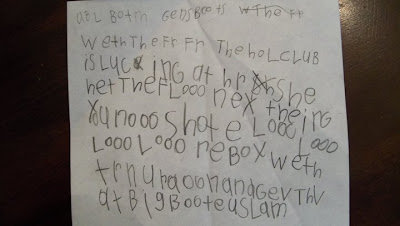 aBL BOTM GeDSBOOTS WTHe Fr
WeTHTHeFr Fr THeHOLCLUB
iSLUCKING aT Hr SHe
HeTTHeFLOOO Nex THeiNG
XUNOOO SHOTe LOOO LOOO
LOOO LOOO ReBOX WeTH
TrNUraOOHANaGeVTHV
aTBIGBOOTeUSLam